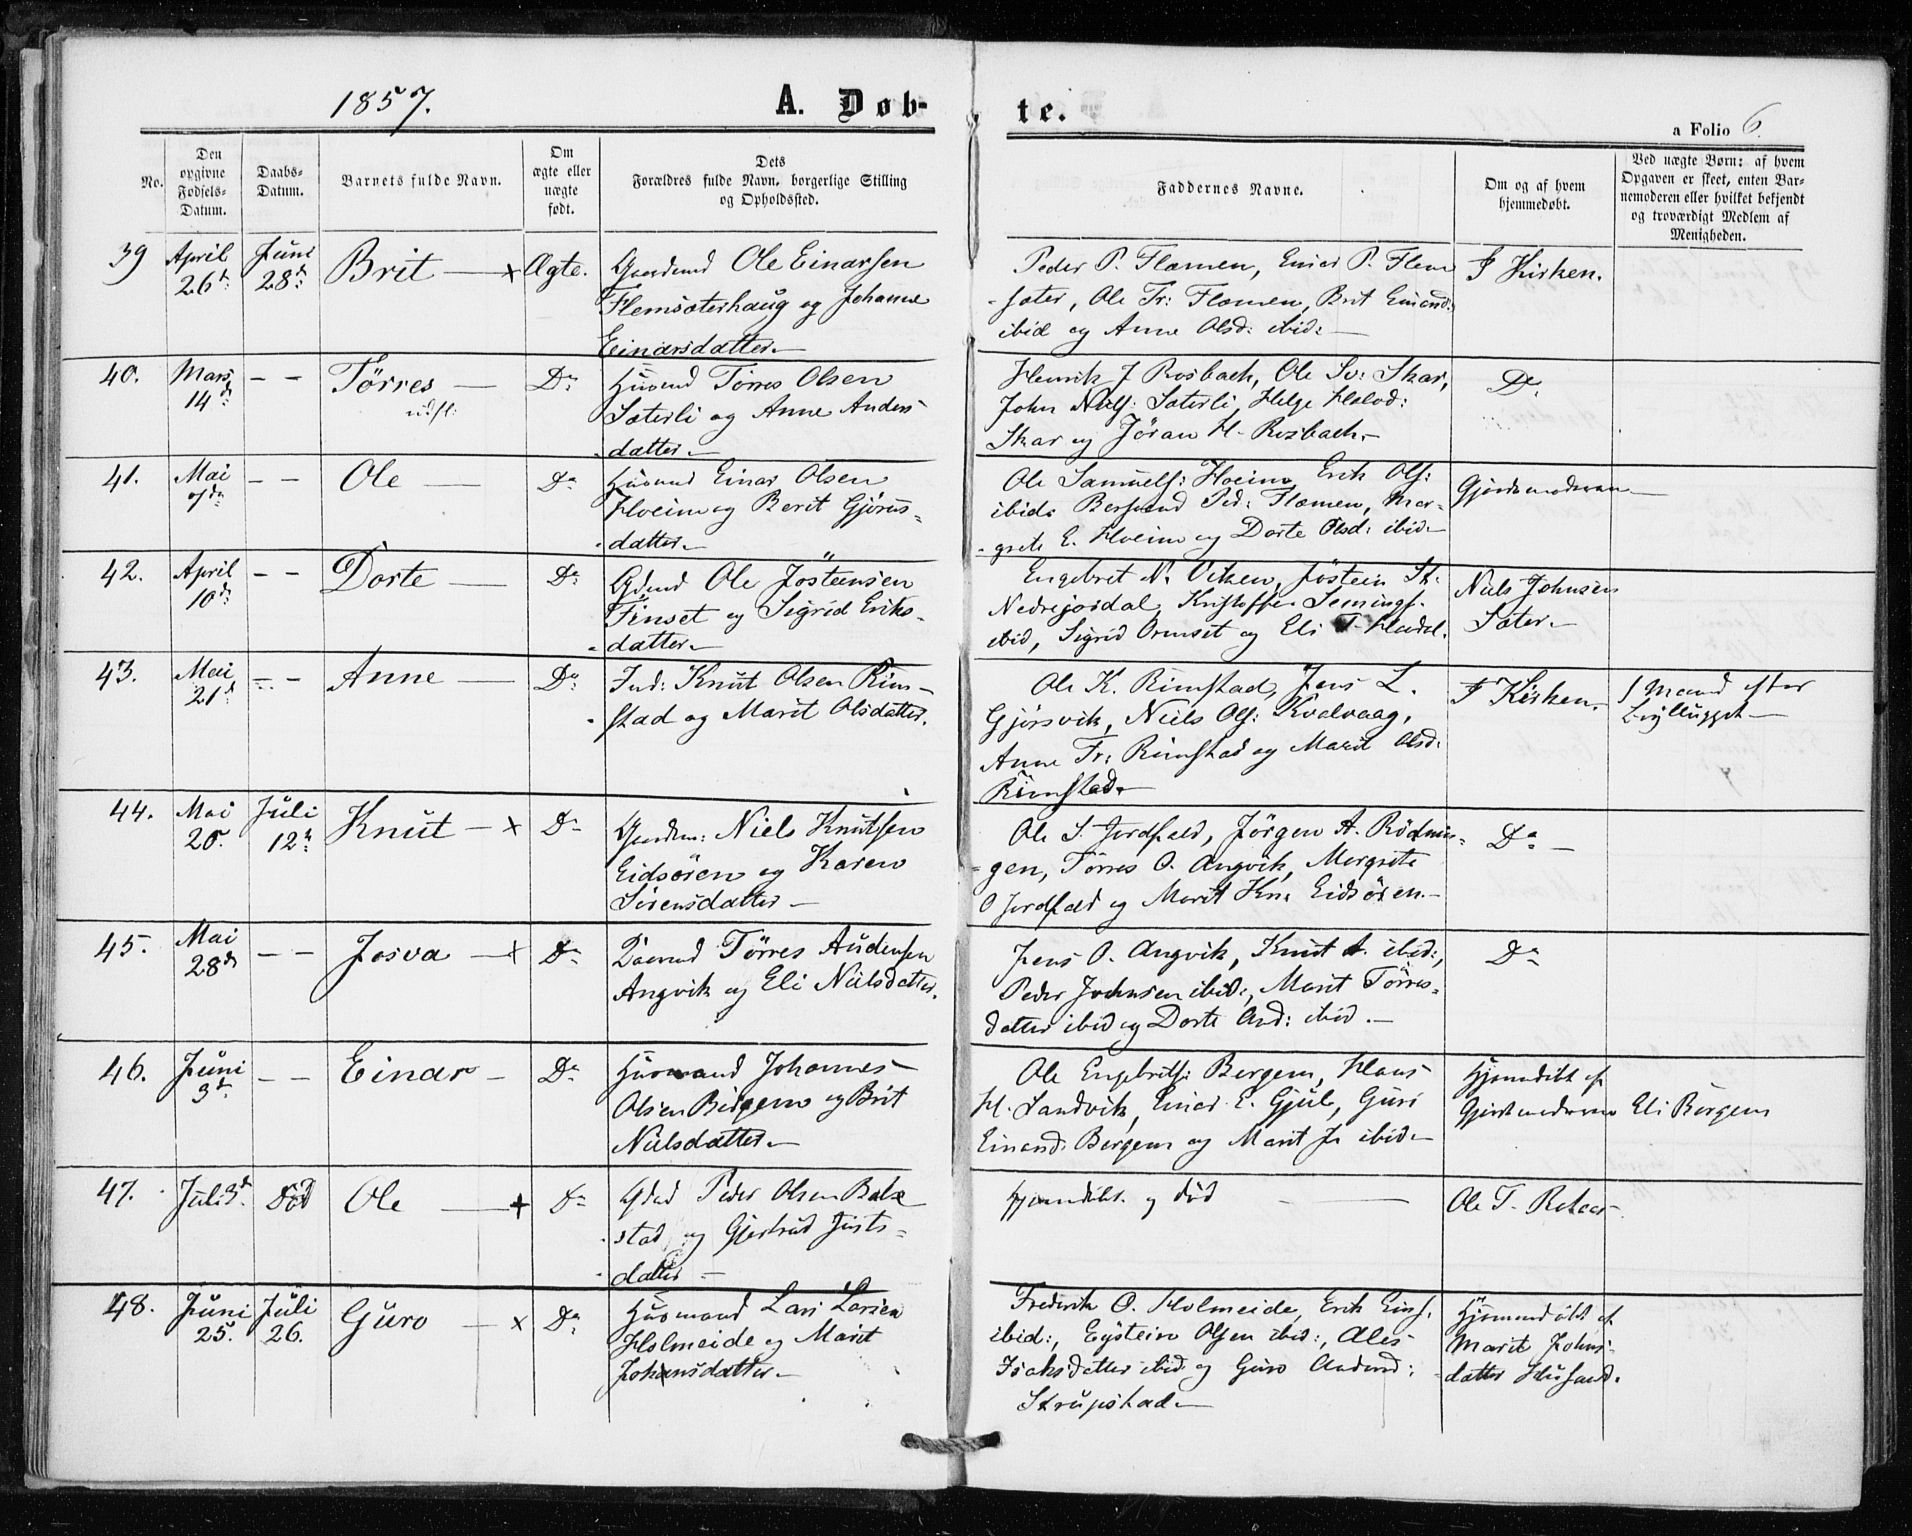 1857.
A. Døb-
te.
a Folio 6.
No.
Den opgivne Fødsels-Datum.
Daabs-Datum.
Barnets fulde Navn.
Om ægte eller uægte født.
Dets Forældres fulde Navn, borgerlige Stilling og Opholdssted.
Faddernes Navne.
Om og af hvem hjemmedøbt.
Ved uægte Børn: af hvem Opgaven er skeet, enten Barnemoderen eller hvilket bekjendt og troværdigt Medlem af Menigheden.
39 April 26de Juni 28de Brit — x Ægte. Gaardmd Ole Einarsen
Flemsæterhaug og Johanne
Einarsdatter.
Peder P. Flæmen, Einar P. Flem
sæter, Ole Tr: Flæmen, Brit Einarsd:
ibid og Anne Olsd: ibid:
I Kirken.
40. Mars 14de — — Törres — Do
udfl:
Husmd Törres Olsen
Sæterli og Anne Anders-
datter.
Henrik J Rosbach, Ole Sv: Skar,
John Niels: Sæterli, Helge Halvd:
Skar og Jöran H. Rosbach.
Do
41. Mai — — Ole — Do Husmd Einar Olsen
Hoeim og Berit Gjörus-
datter.
Ole Samuels: Hoeim, Erik Ols:
ibid: Bersvend Ped: Flæmen, Mar-
grete E. Hoeim og Dorte Olsd: ibid
Gjordemoderen
42. April 10de — — Dorte — Do Gdmd Ole Jösteensen
Finset og Sigrid Eriks-
datter.
Engebret N. Viken, Jöstein Sk:
Nedrejordal, Kristoffer Semings.
ibid, Sigrid Ormset og Eli T.
Niels Johnsen
Sæter.
43. Mai 21de — — Anne — Do Ind: Knut Olsen Rim-
stad og Marit Olsdatter.
Ole K. Rimstad, Jens L.
Gjörsvik, Niels Ols: Kvalvaag,
Anne Fr: Rimstad og Marit Olsd:
Rimstad.
I Kirken.
1 Maand efter
44. Mai 20. Juli 12te Knut — x Do Gaardm: Niels Knutsen
Eidsören og Karen
Sörensdatter —
Ole S. Jordfald, Jörgen A. Rödnin-
gen, Törres O. Angvik, Margrete
O Jordfald og Marit Kn: Eidsören.
Do —
45. Mai 28de — — Josva — x Do Törres Audensen
Angvik og Eli Nielsdatter.
Jens O. Angvik, Knut A. ibid:,
Peder Johnsen ibid:, Marit Törres-
datter ibid og Dorte And: ibid.
Do
46. Juni 3de — — Einar — Do Husmand Johannes
Olsen Bergem og Brit
Nielsdatter.
Ole Engebrits: Bergem, Hans
H. Sandvik, Einar E. Gjül, Guri
Einarsd: Bergem og Marit J. ibid
Hjemmdöbt af
Gjordemoderen
Eli Bergem
47. Juli 3de Död Ole — + Do Gdmd Peder Olsen Bols
stad og Gjertrud Justs-
datter —
Hjemmdöbt og död
Ole T.
48. Juni 25. Juli 26. Guro — x Do Husmand Lars Larsen
Holmeide og Marit
Johansdatter.
Frederik O. Holmeide, Erik Eins.
ibid:, Eystein Olsen ibid:, Ales
Isaksdatter ibid og Guro
Strupstad
Hjemmedöbt af
Marit Johns-
datter